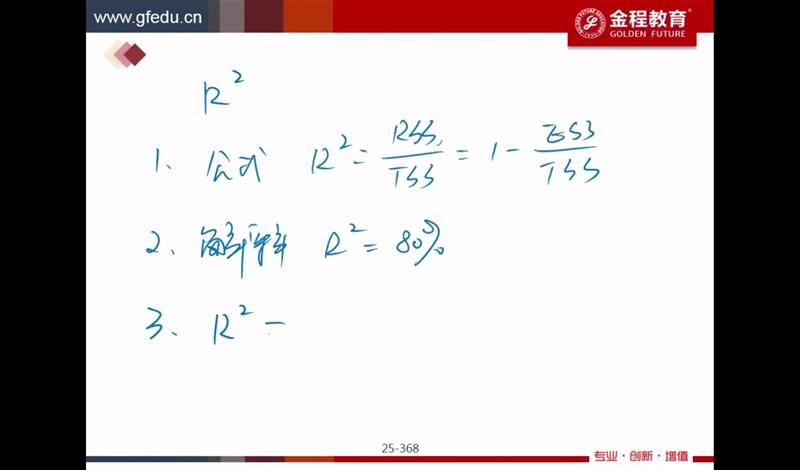 www.gfedu.cn
金程教育
GOLDEN FUTURE
R²
1、公式 R² = RSS/TSS = 1 - ESS/TSS
2、解释 R² = 80%
3、R² =
25-368
专业·创新·增值